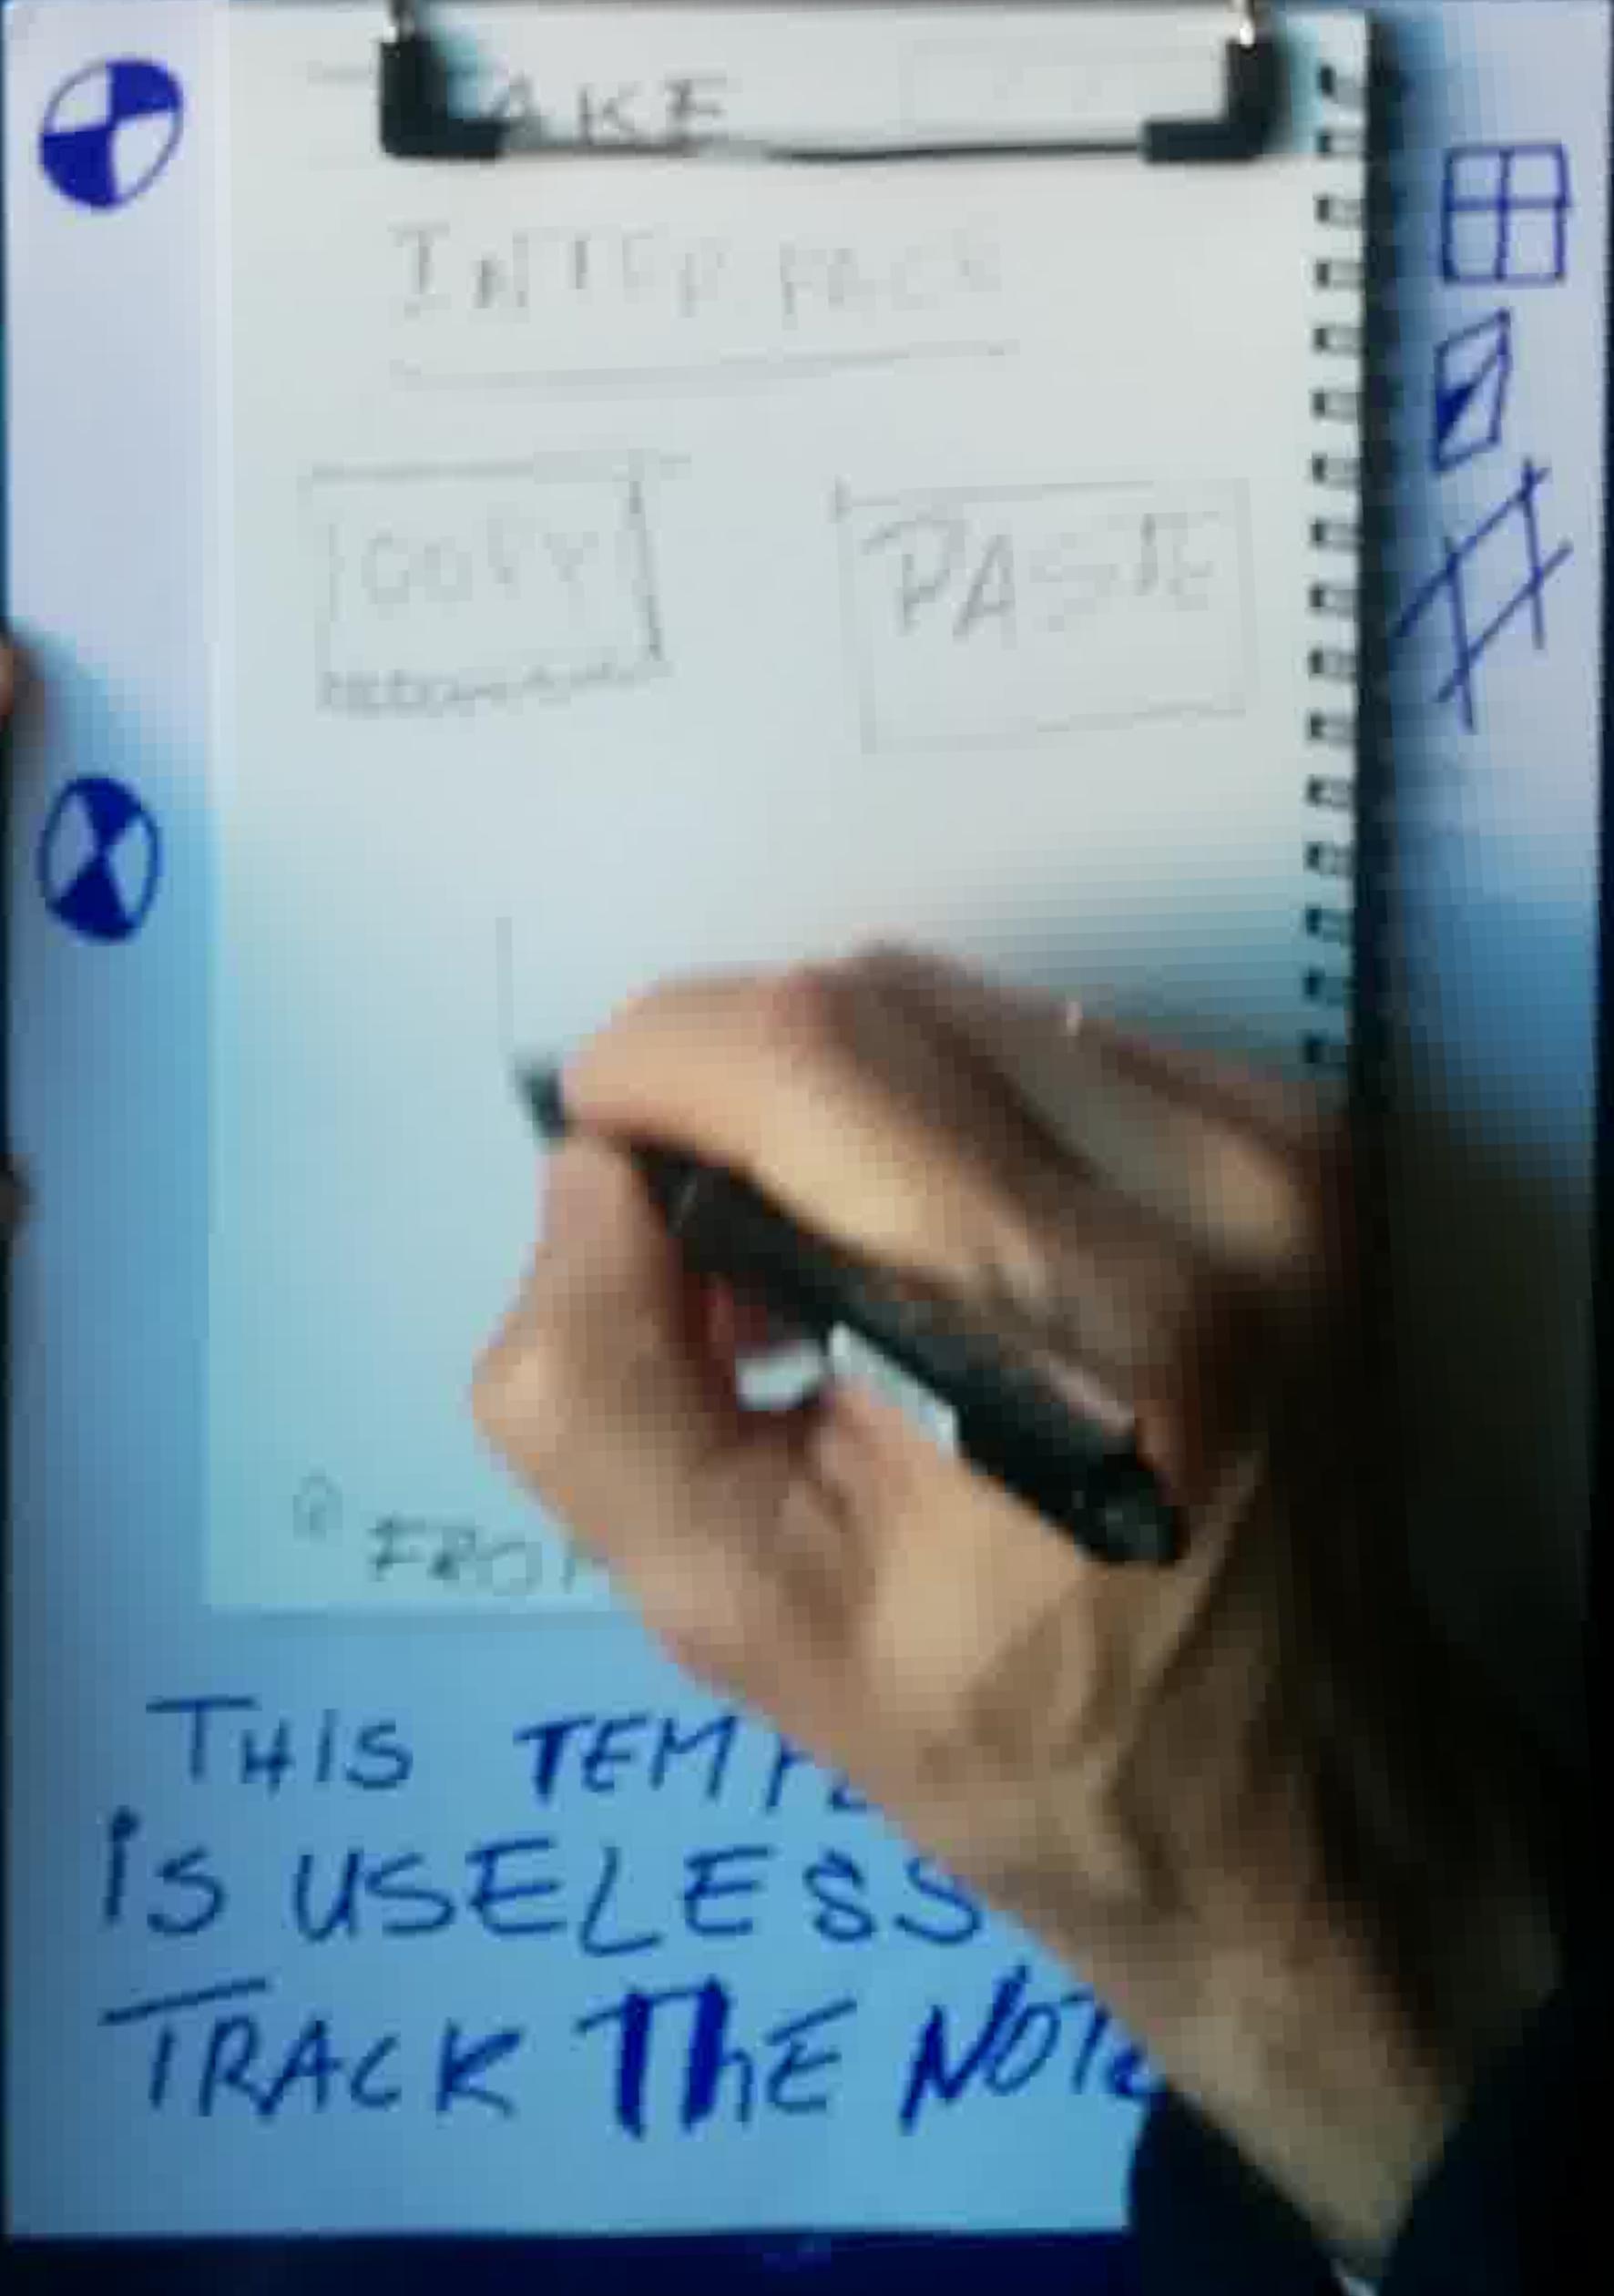 AKE
INTERFACE
COPY PASTE
FROM
THIS
is USELESS
TRACK ThE NOTE